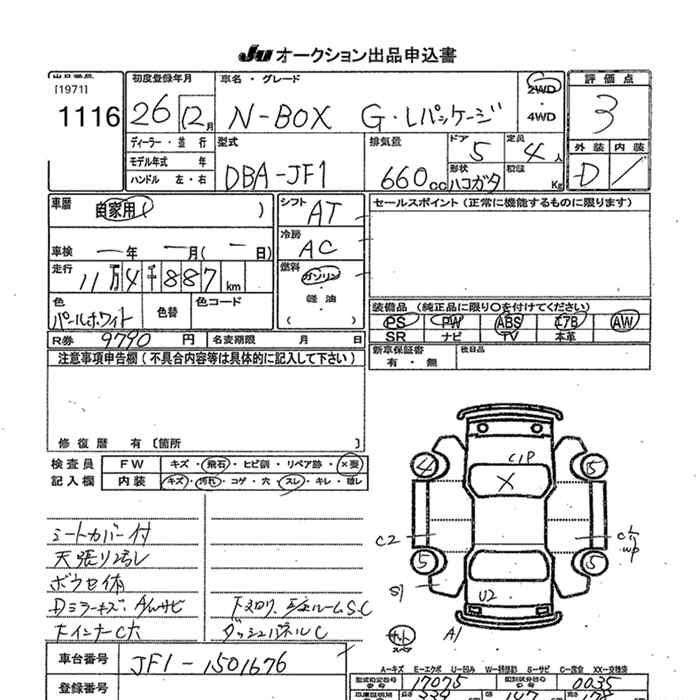 JU オークション出品申込書
[1971]
1116
初度登録年月
26 12月
車名・グレード
N-BOX G・Lパッケージ
2WD
・
4WD
評価点
3
外装 内装
D
ディーラー・並行
モデル年式 年
ハンドル 左・右
型式
DBA-JF1
排気量
660cc
ドア
5
定員
4人
形状
ハコガタ
Kg
車歴
自家用
)
車検 ー年 ー月(ー日)
走行
11万4千887km
色
パールホワイト
色替
色コード
シフト
AT
冷房
AC
燃料
ガソリン
・
軽油
( )
セールスポイント(正常に機能するものに限ります)
装備品 (純正品に限り○を付けてください)
PS PW ABS エアB AW
SR ナビ TV 本革
R券 9790 円
名変期限 月 日
新車保証書
有・無
注意事項申告欄(不具合内容等は具体的に記入して下さい)
修復歴 有〔箇所 〕
検査員
記入欄
FW キズ・飛石・ヒビ割・リペア跡・×要
内装 キズ・汚れ・コゲ・穴・スレ・キレ・破レ
シートカバー付
天張り汚レ
Dミラーキズ、A/Wサビ
ダッシュパネルC
C1P
X
4
5
C2
5
5
S1
U2
A1
スペア
車台番号 JF1-1501676
登録番号
A-キズ E-エクボ U-凹み S-サビ C-腐食 XX-交換済
17075
0035